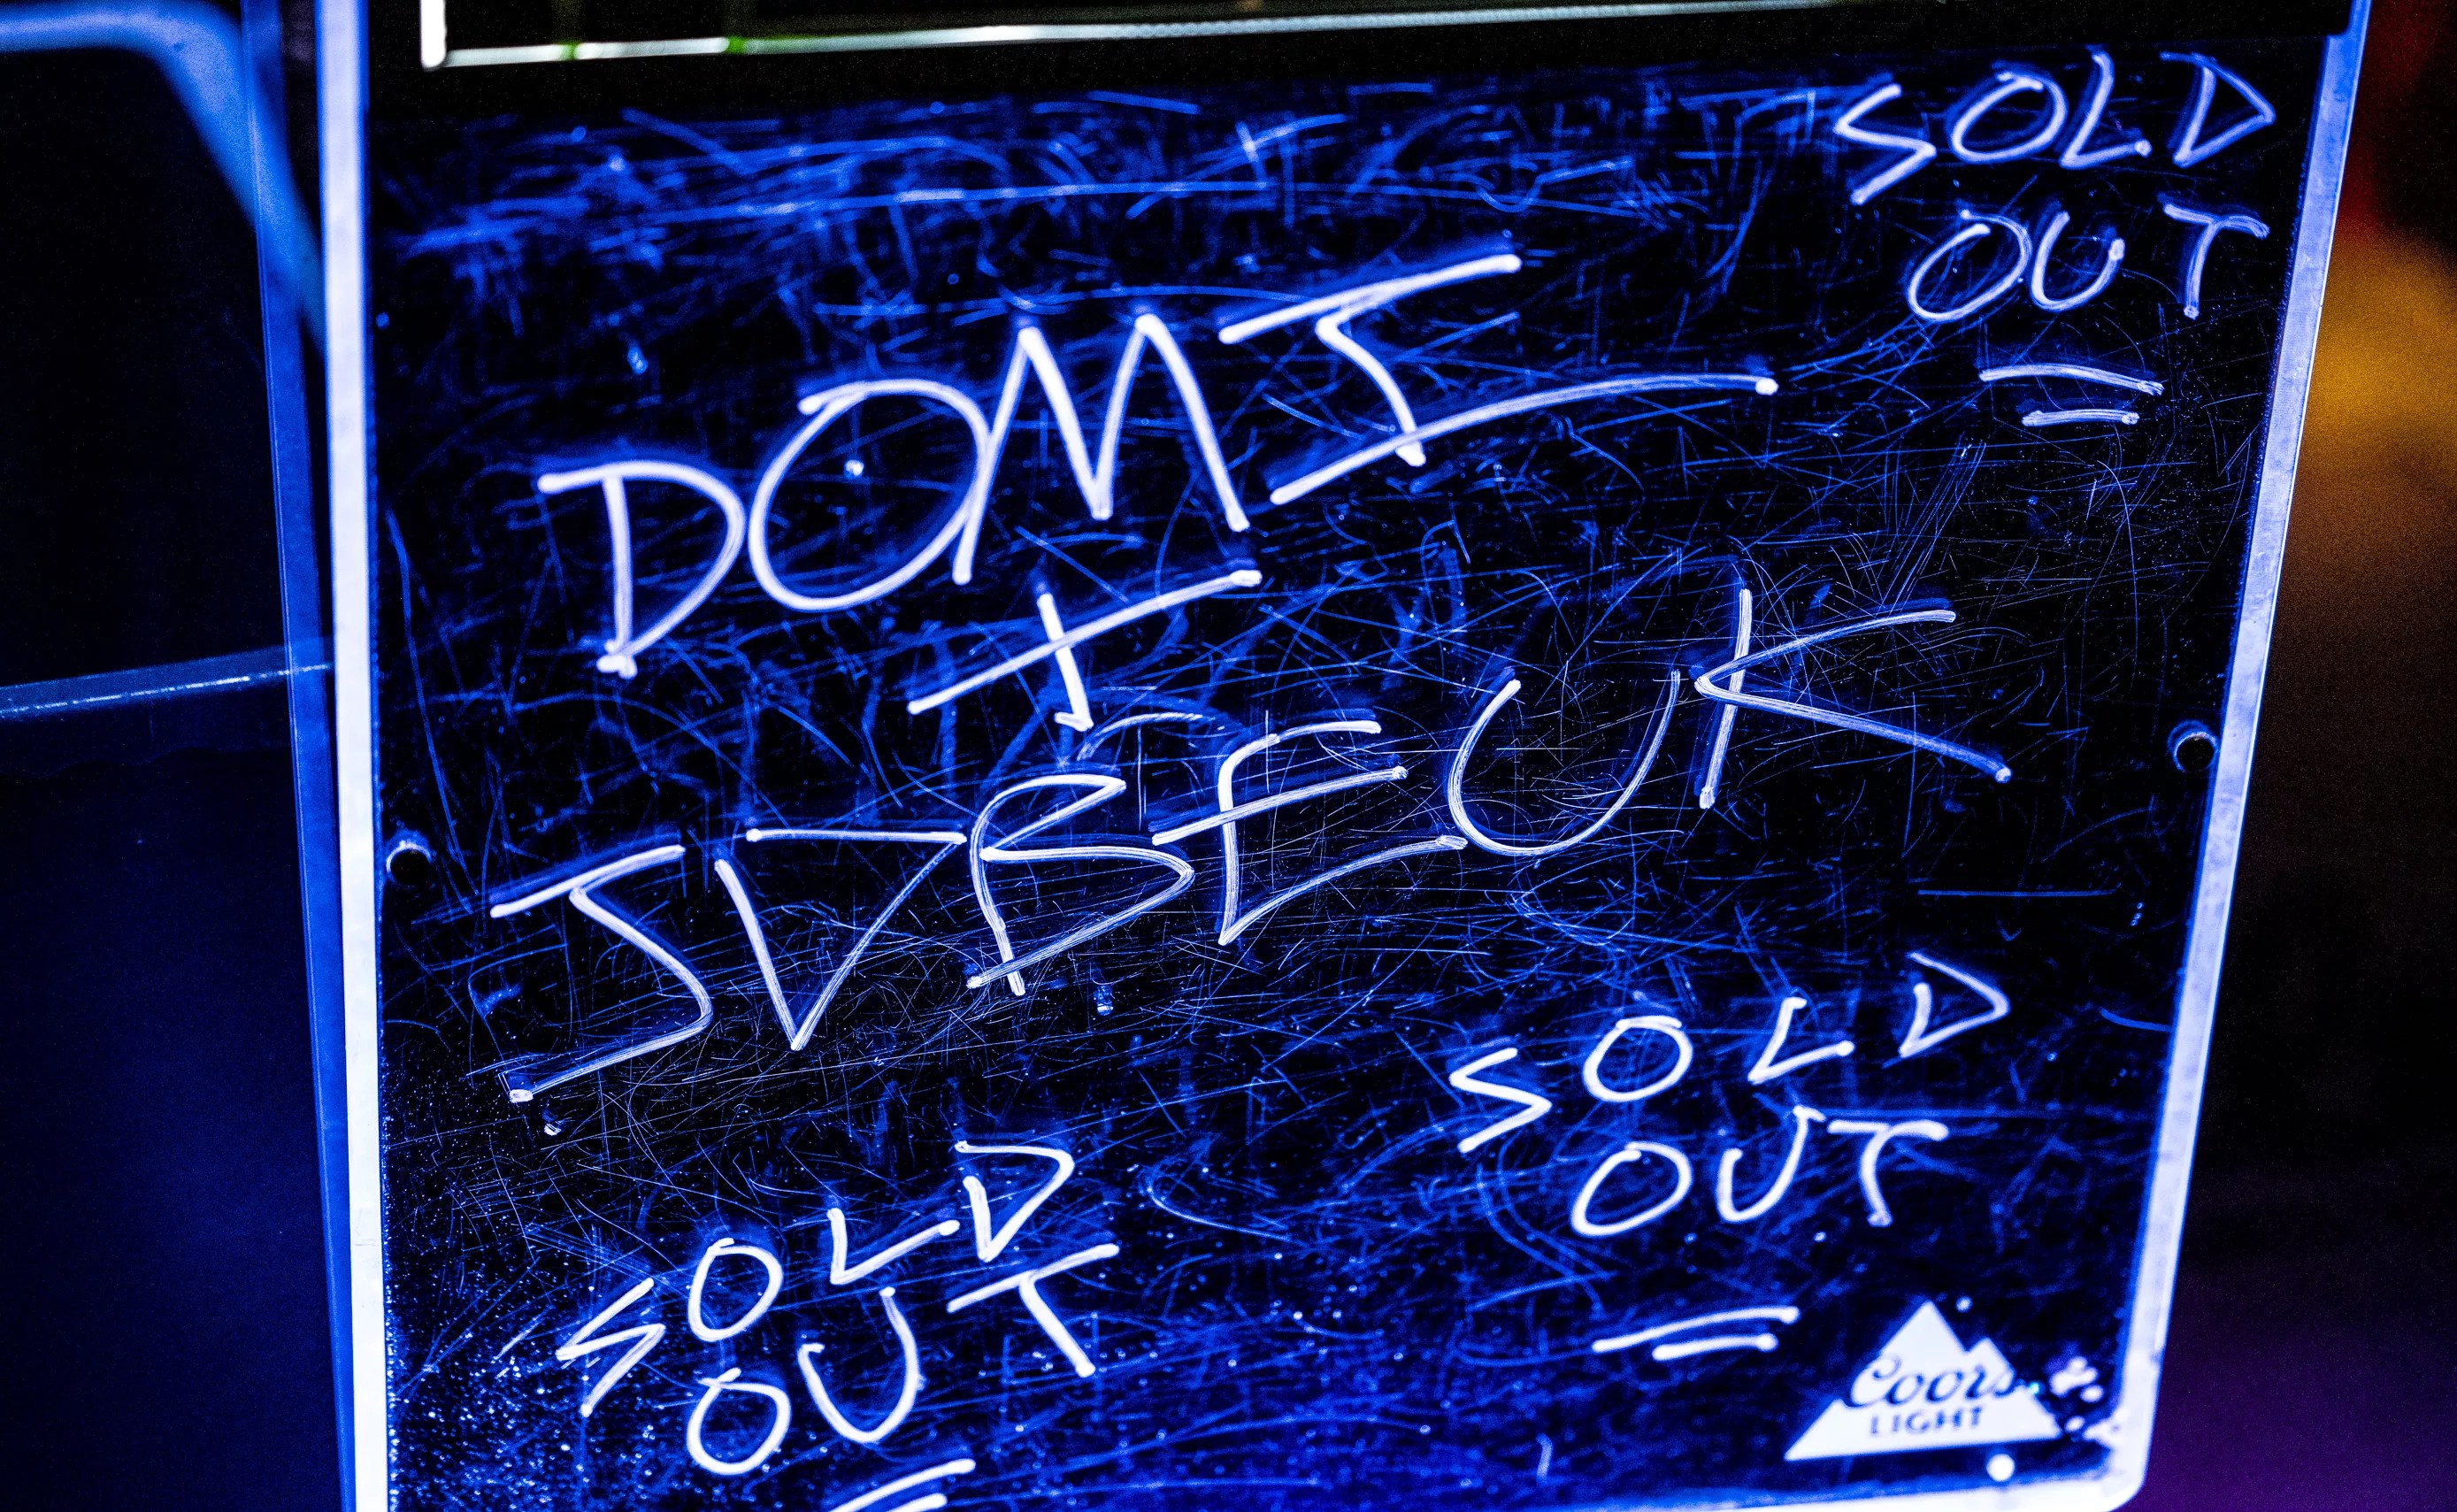 SOLD
OUT
DOMI
+
JD BECK
SOLD
OUT
SOLD
OUT
Coors
LIGHT